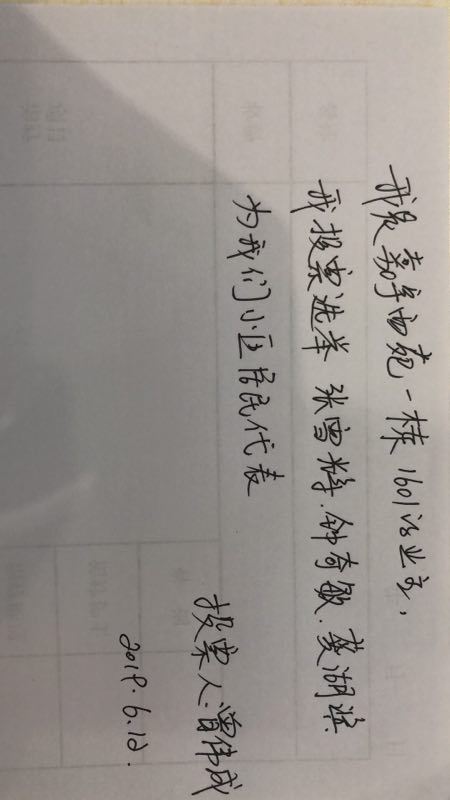 我是嘉宇西苑一栋1601的业主，
我投票选举 张雪辉.钟奇敏.龚湖滨
为我们小区居民代表
投票人:曾伟成
2019.6.12.